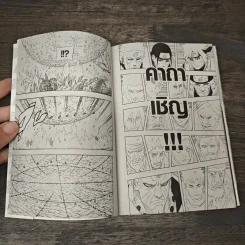 !!?
คาถา
เชิญ
!!!